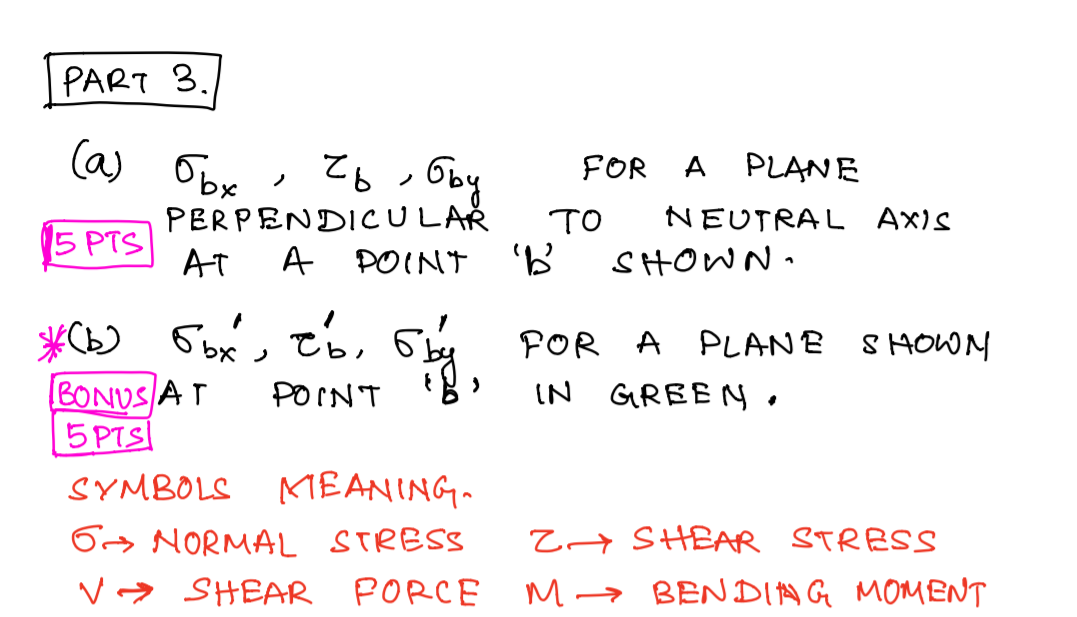 PART 3.
(a) σbx , τb , σby FOR A PLANE
PERPENDICULAR TO NEUTRAL AXIS
5 PTS AT A POINT 'b' SHOWN.
*(b) σbx', τb', σby' FOR A PLANE SHOWN
BONUS AT POINT 'b' IN GREEN.
5 PTS
SYMBOLS MEANING.
σ→ NORMAL STRESS τ→ SHEAR STRESS
V→ SHEAR FORCE M→ BENDING MOMENT